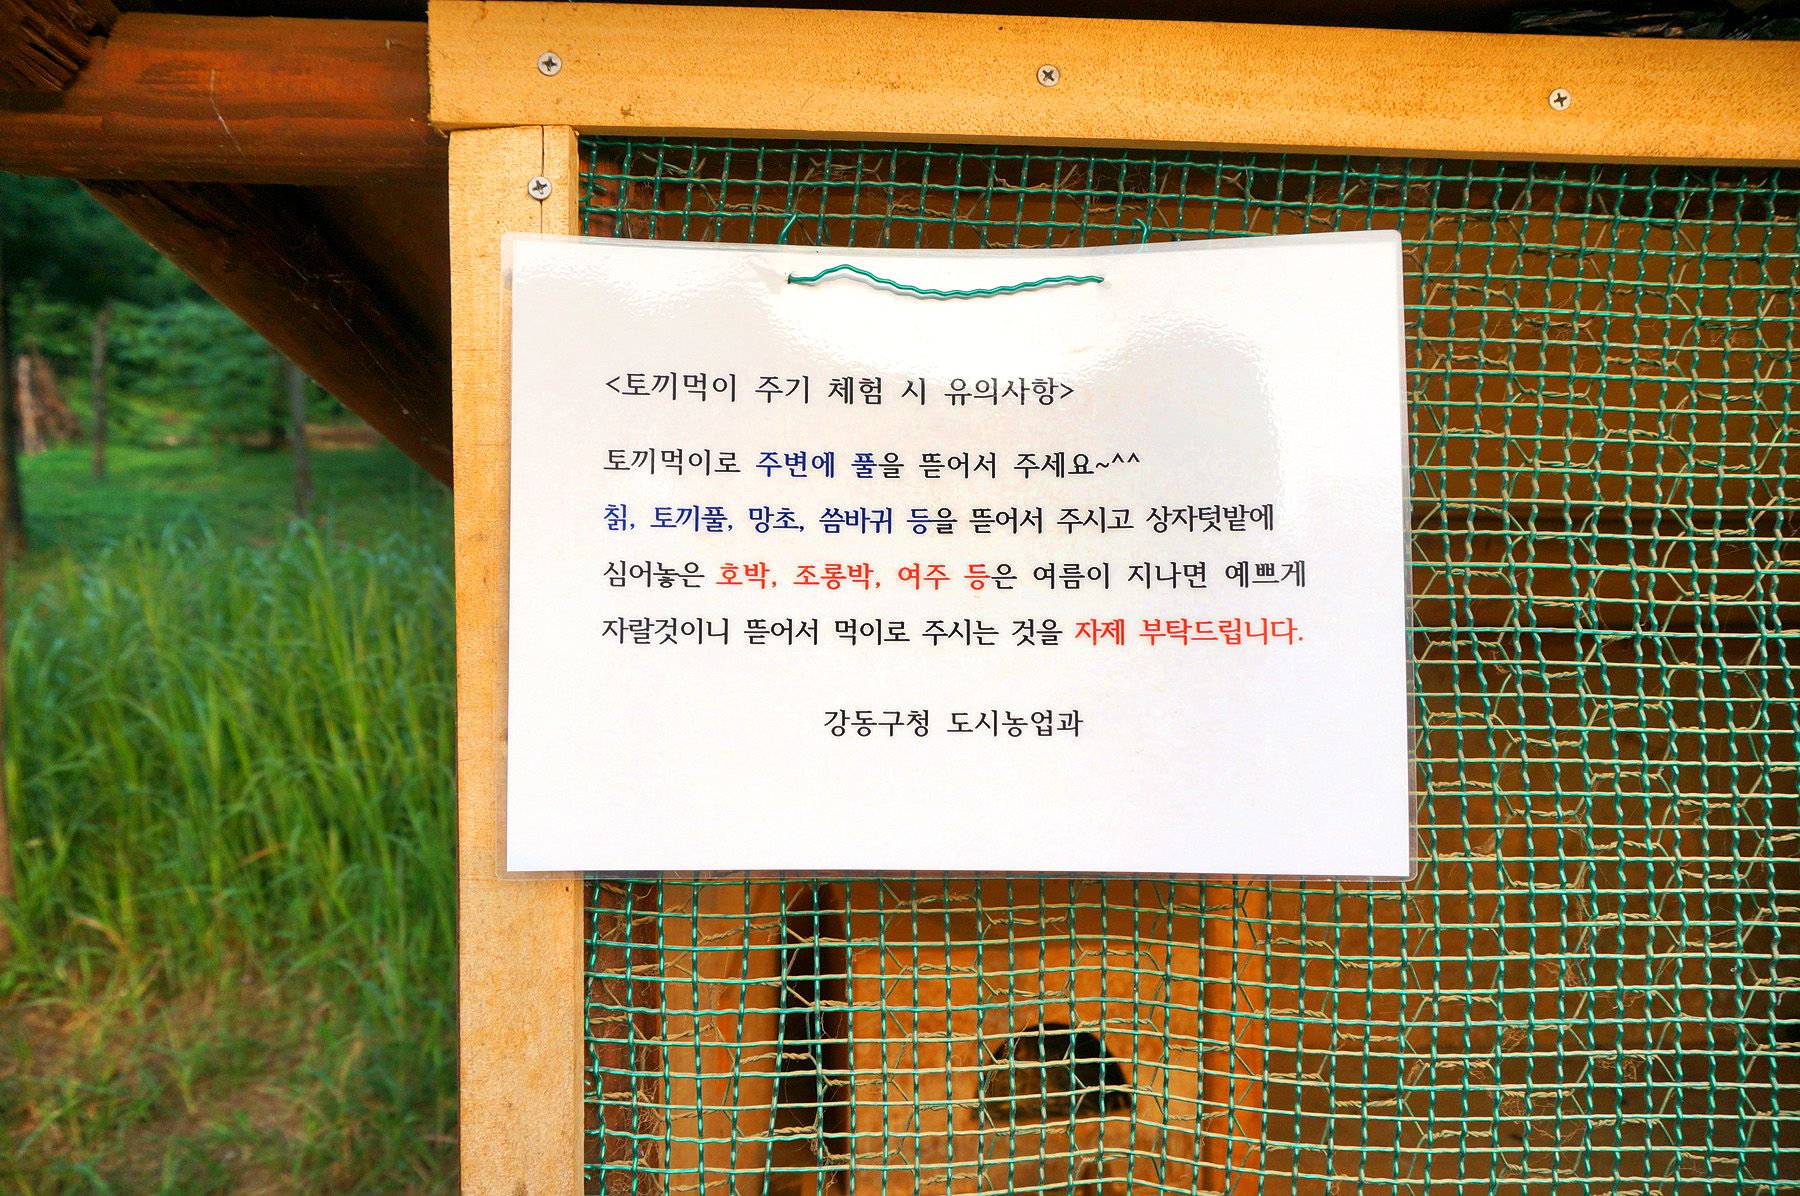 <토끼먹이 주기 체험 시 유의사항>
토끼먹이로 주변에 풀을 뜯어서 주세요~^^
칡, 토끼풀, 망초, 씀바귀 등을 뜯어서 주시고 상자텃밭에
심어놓은 호박, 조롱박, 여주 등은 여름이 지나면 예쁘게
자랄것이니 뜯어서 먹이로 주시는 것을 자제 부탁드립니다.
강동구청 도시농업과